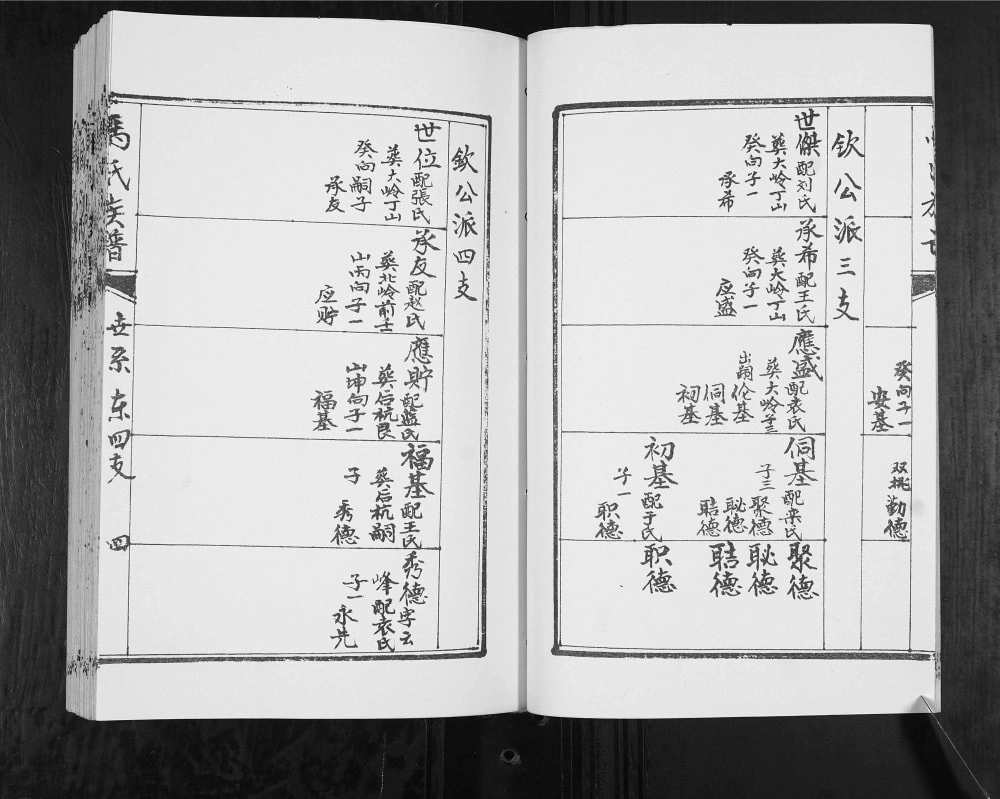 癸向子一
安基
双祧勤德
钦公派三支
世傑配刘氏
葬大岭丁山
癸向子一
承希
承希配王氏
葬大岭丁山
癸向子一
应盛
應盛配袁氏
葬大岭
出嗣伦基
侗基
初基
侗基配栾氏
子三聚德
聪德
聕德
初基配于氏
子一
职德
聚德
聪德
职德
钦公派四支
世位配張氏
葬大岭丁山
癸向嗣子
承友
承友配赵氏
葬北岭前壬
山丙向子一
应贮
應貯配藍氏
葬后杭艮
山坤向子一
福基
福基配王氏
葬后杭嗣
子秀德
秀德字云
峰配袁氏
子一永先
馬氏族譜
世系东四支
四